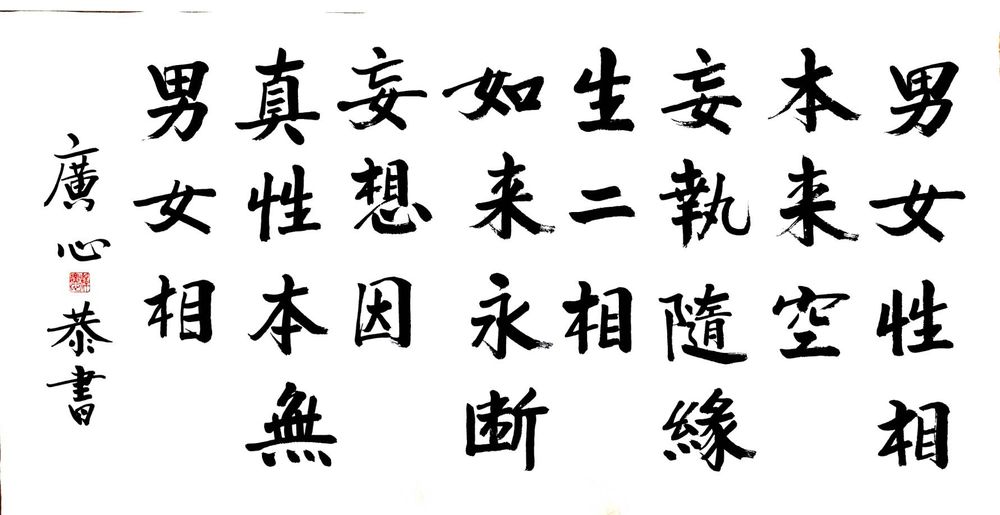 男女性相
本来空
妄執隨緣
生二相
如来永断
妄想因
真性本無
男女相
廣心恭書